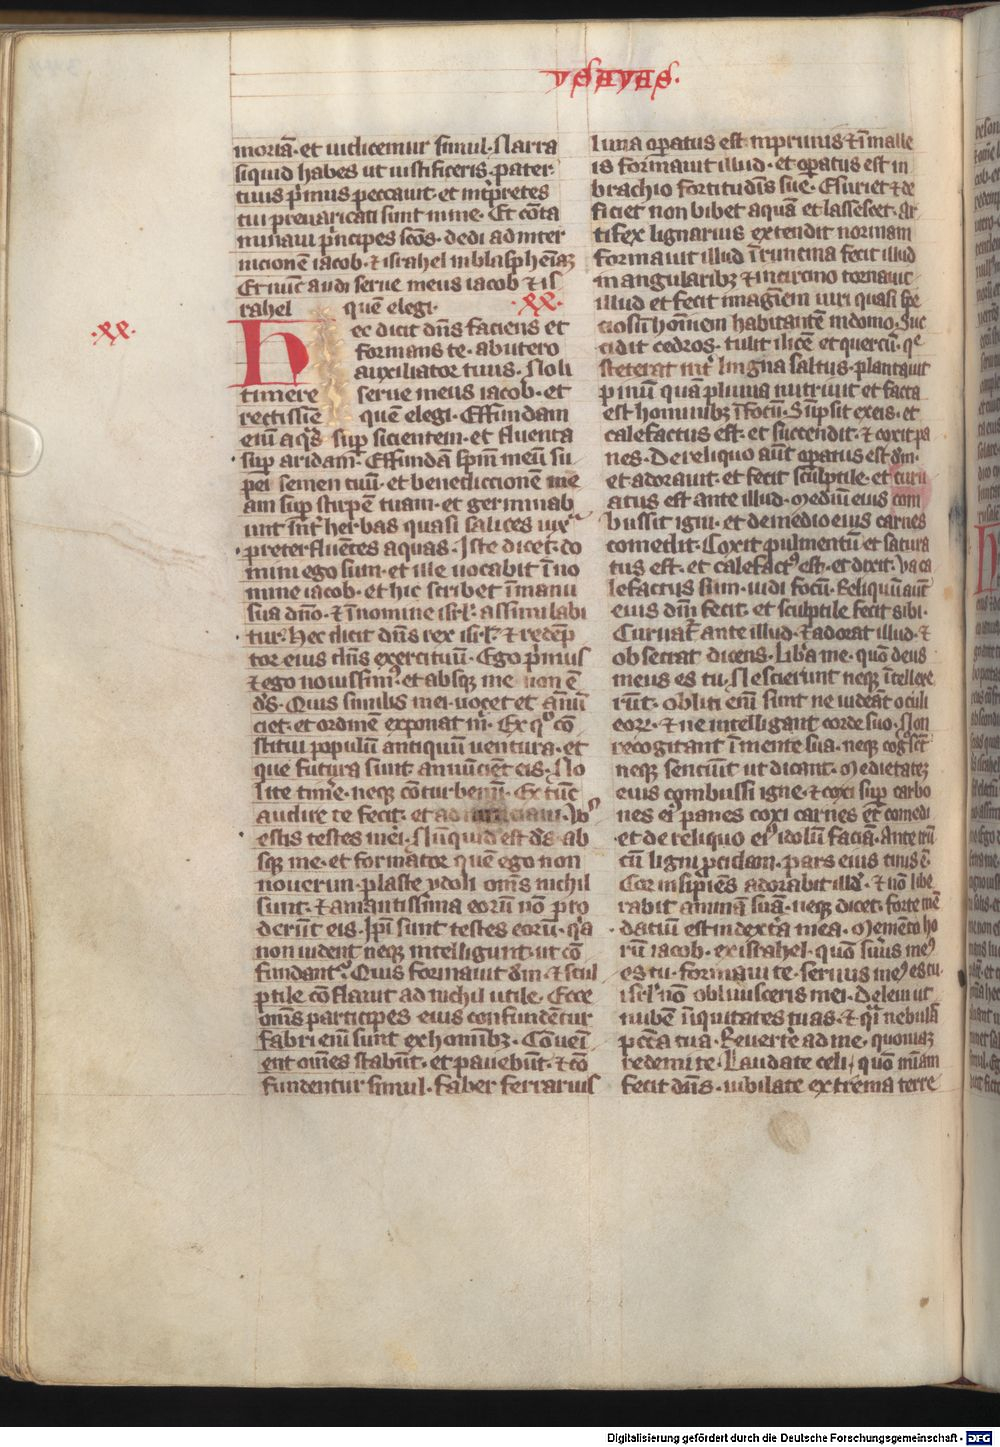 ysayas.
moriā· et iudicemur simul· Narra
siquid habes ut iustificeris· pater
tuus p̄mus peccauit· et int̄pretes
tui preuaricati sunt in me· Et cōta
minaui p̄ncipes scōs· dedi ad inter
nicionē iacob· ⁊ israhel in blasphēiaꝫ
Et nūc audi serue meus iacob ⁊ is
rahel quē elegi· ·xx·
·xx·
Hec dicit dn̄s faciens et
formans te· ab utero
auxiliator tuus· Noli
timere serue meus iacob· et
rectissīe quē elegi· Effundam
enī aq̄s sup̱ sicientem· et fluenta
sup̱ aridam· Effundā sp̄m meū su
per semen tuū· et benediccionem me
am sup̱ stirpem tuam· et germinab
unt int̄ herbas quasi salices iuxᵃ
preterfluētes aquas· Iste dicet· do
mini ego sum· et ille uocabit ī no
mine iacob· et hic scribet ī manu
sua dn̄o· ⁊ ī nomine isrł· assimilabi
tur· Hec dicit dn̄s rex isrł· ⁊ redēp
tor eius dn̄s exercituū· Ego p̄mus
⁊ ego nouissimꝰ· et absqꝫ me non ē
ds̄· Quis similis mei· uocet et ānū
ciet· et ordinē exponat m̄· Ex qᵒ cō
stitui populū antiquū uentura· et
que futura sunt· annūciēt eis· No
lite tim̄e· neqꝫ cōturbemī· Ex tūc
audire te feci· et ad
estis testes mei· Nūquid est ds̄ ab
sqꝫ me· et formator quē ego non
nouerim· plaste ydoli om̄s nichil
sunt· ⁊ amantissima eorū nō pro
derūt eis· Ip̄i sunt testes eorū· qᵃ
non uident neqꝫ intelligunt· ut cō
fundantᷣ· Quis formauit dm̄· ⁊ scul
ptile cōflauit ad nichil utile· Ecce
om̄s participes eius confundētur
fabri enī sunt ex homībꝫ· Cōueī
ent om̄es stabūt· et pauebūt· ⁊ cō
fundentur simul· faber ferrarius
lima op̱atus est· in prunis ⁊ ī malle
is formauit illud· et op̱atus est in
brachio fortitudīs sue· Esuriet ⁊ de
ficiet non bibet aquā et lassescet· Ar
tifex lignarius extendit normam
formauit illud ī runcina fecit illud
in angularibꝫ ⁊ in circino tornauit
illud et fecit imagīem uiri quasi spe
ciosū hoīem habitantē in domo· Suc
cidit cedros· tulit ilicē et quercū· qᵉ
steterat int̄ lingna saltus· plantauit
pinū quā pluuia nutriuit et facta
est hominibꝫ ī focū· Sūpsit ex eis· et
calefactus est· et succendit· ⁊ coxit pa
nes· De reliquo aūt op̱atus est dm̄·
et adorauit· et fecit sculptile· et curu
atus est ante illud· Mediū eius com
bussit igni· et de medio eius carnes
comedit· Coxit pulmentū et satura
tus est· et calefactꝰ est· et dixit· Va ca
lefactus sum· uidi focū· Reliquū aūt
eius dm̄ fecit· et sculptile fecit sibi·
Curuat̄ ante illud· ⁊ adorat illud· ⁊
obsecrat dicens· Lib̄a me· quō deus
meus es tu· Nescierunt neqꝫ ītellere
rūt· obliti enī sunt ne uideāt oculi
eorꝫ· ⁊ ne intelligant corde suo· Non
recogitant ī mente sua· neqꝫ cogͦscūt
neqꝫ senciūt ut dicant· Medietateꝫ
eius combussi igne· ⁊ coxi sup̱ carbo
nes eiꝰ panes coxi carnes et comedi
·et de reliquo eiꝰ idolū faciā· Ante trū
cū ligni p̱cidam· pars eius cinis ē·
Cor insipiēs adorabit illd̄· ⁊ nō libe
rabit animā suā· neqꝫ dicet· forte mē
daciū est in dexťa mea· Memēto ho
rū iacob· ex israhel· quō seruus meꝰ
es tu· formaui te· seruus meꝰ es tu·
isrł nō obliuisceris mei· Deleui ut
nubē iniquitates tuas· ⁊ qᵃī nebulā
pcc̄ta tua· Reuert̄e ad me· quoniaꝫ
redemi te· Laudate celi· quō mīam
fecit dn̄s· iubilate extrema terre
Digitalisierung gefördert durch die Deutsche Forschungsgemeinschaft - DFG